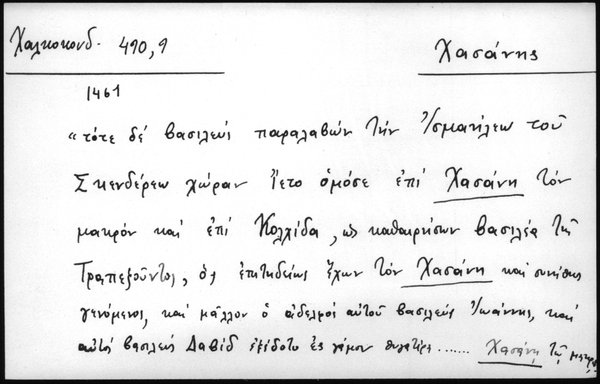 Χαλκοκονδ. 490,9
Χασάνης
1461
"τότε δέ βασιλεύς παραλαβών τήν Ἰσμαήλεω τοῦ
Σκενδέρεω χώραν ἵετο ὁμόσε ἐπί Χασάνη τόν
μακρόν καί ἐπί Κολχίδα, ὡς καθαιρήσων βασιλέα τῆς
Τραπεζοῦντος, ὅς ἐπιτηδείως ἔχων τόν Χασάνη καί συνήθης
γενόμενος, καί μᾶλλον ὁ ἀδελφός αὐτοῦ βασιλεύς Ἰωάννης, καί
αὐτός βασιλεύς Δαβίδ ἐξέδοτο ἐς γάμον θυγατέρα ....... Χασάνη τῷ μακρῷ